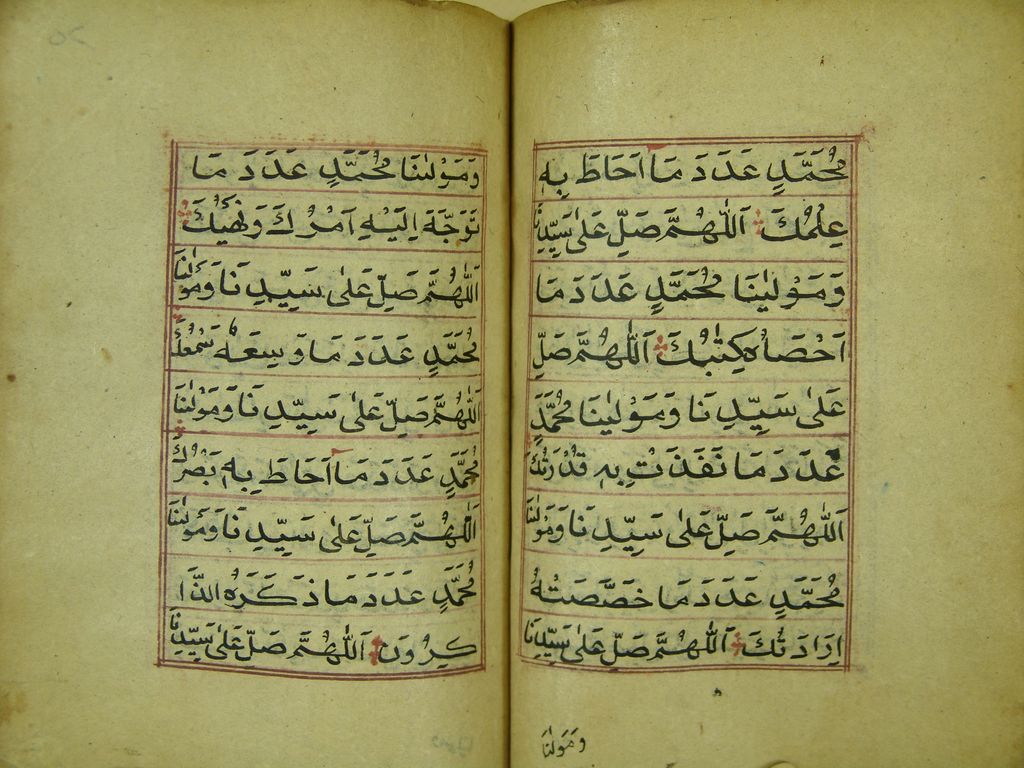 مُحَمَّدٍ عَدَدَ مَا اَحَاطَ بِهٖ
عِلْمُكَ اَللّٰهُمَّ صَلِّ عَلٰى سَيِّدِنَا
وَمَوْلٰينَا مُحَمَّدٍ عَدَدَ مَا
اَحْصَاهُ كِتٰبُكَ اَللّٰهُمَّ صَلِّ
عَلٰى سَيِّدِنَا وَمَوْلٰينَا مُحَمَّدٍ
عَدَدَ مَا نَفَذَتْ بِهٖ قُدْرَتُكَ
اَللّٰهُمَّ صَلِّ عَلٰى سَيِّدِنَا وَمَوْلٰينَا
مُحَمَّدٍ عَدَدَ مَا خَصَّصَتْهُ
اِرَادَتُكَ اَللّٰهُمَّ صَلِّ عَلٰى سَيِّدِنَا
وَمَوْلٰنَا
وَمَوْلٰينَا مُحَمَّدٍ عَدَدَ مَا
تَوَجَّهَ اِلَيْهِ اَمْرُكَ وَنَهْيُكَ
اَللّٰهُمَّ صَلِّ عَلٰى سَيِّدِنَا وَمَوْلٰينَا
مُحَمَّدٍ عَدَدَ مَا وَسِعَهٗ سَمْعُكَ
اَللّٰهُمَّ صَلِّ عَلٰى سَيِّدِنَا وَمَوْلٰينَا
مُحَمَّدٍ عَدَدَ مَا اَحَاطَ بِهٖ بَصَرُكَ
اَللّٰهُمَّ صَلِّ عَلٰى سَيِّدِنَا وَمَوْلٰينَا
مُحَمَّدٍ عَدَدَ مَا ذَكَرَهُ الذَّا
كِرُونَ اَللّٰهُمَّ صَلِّ عَلٰى سَيِّدِنَا